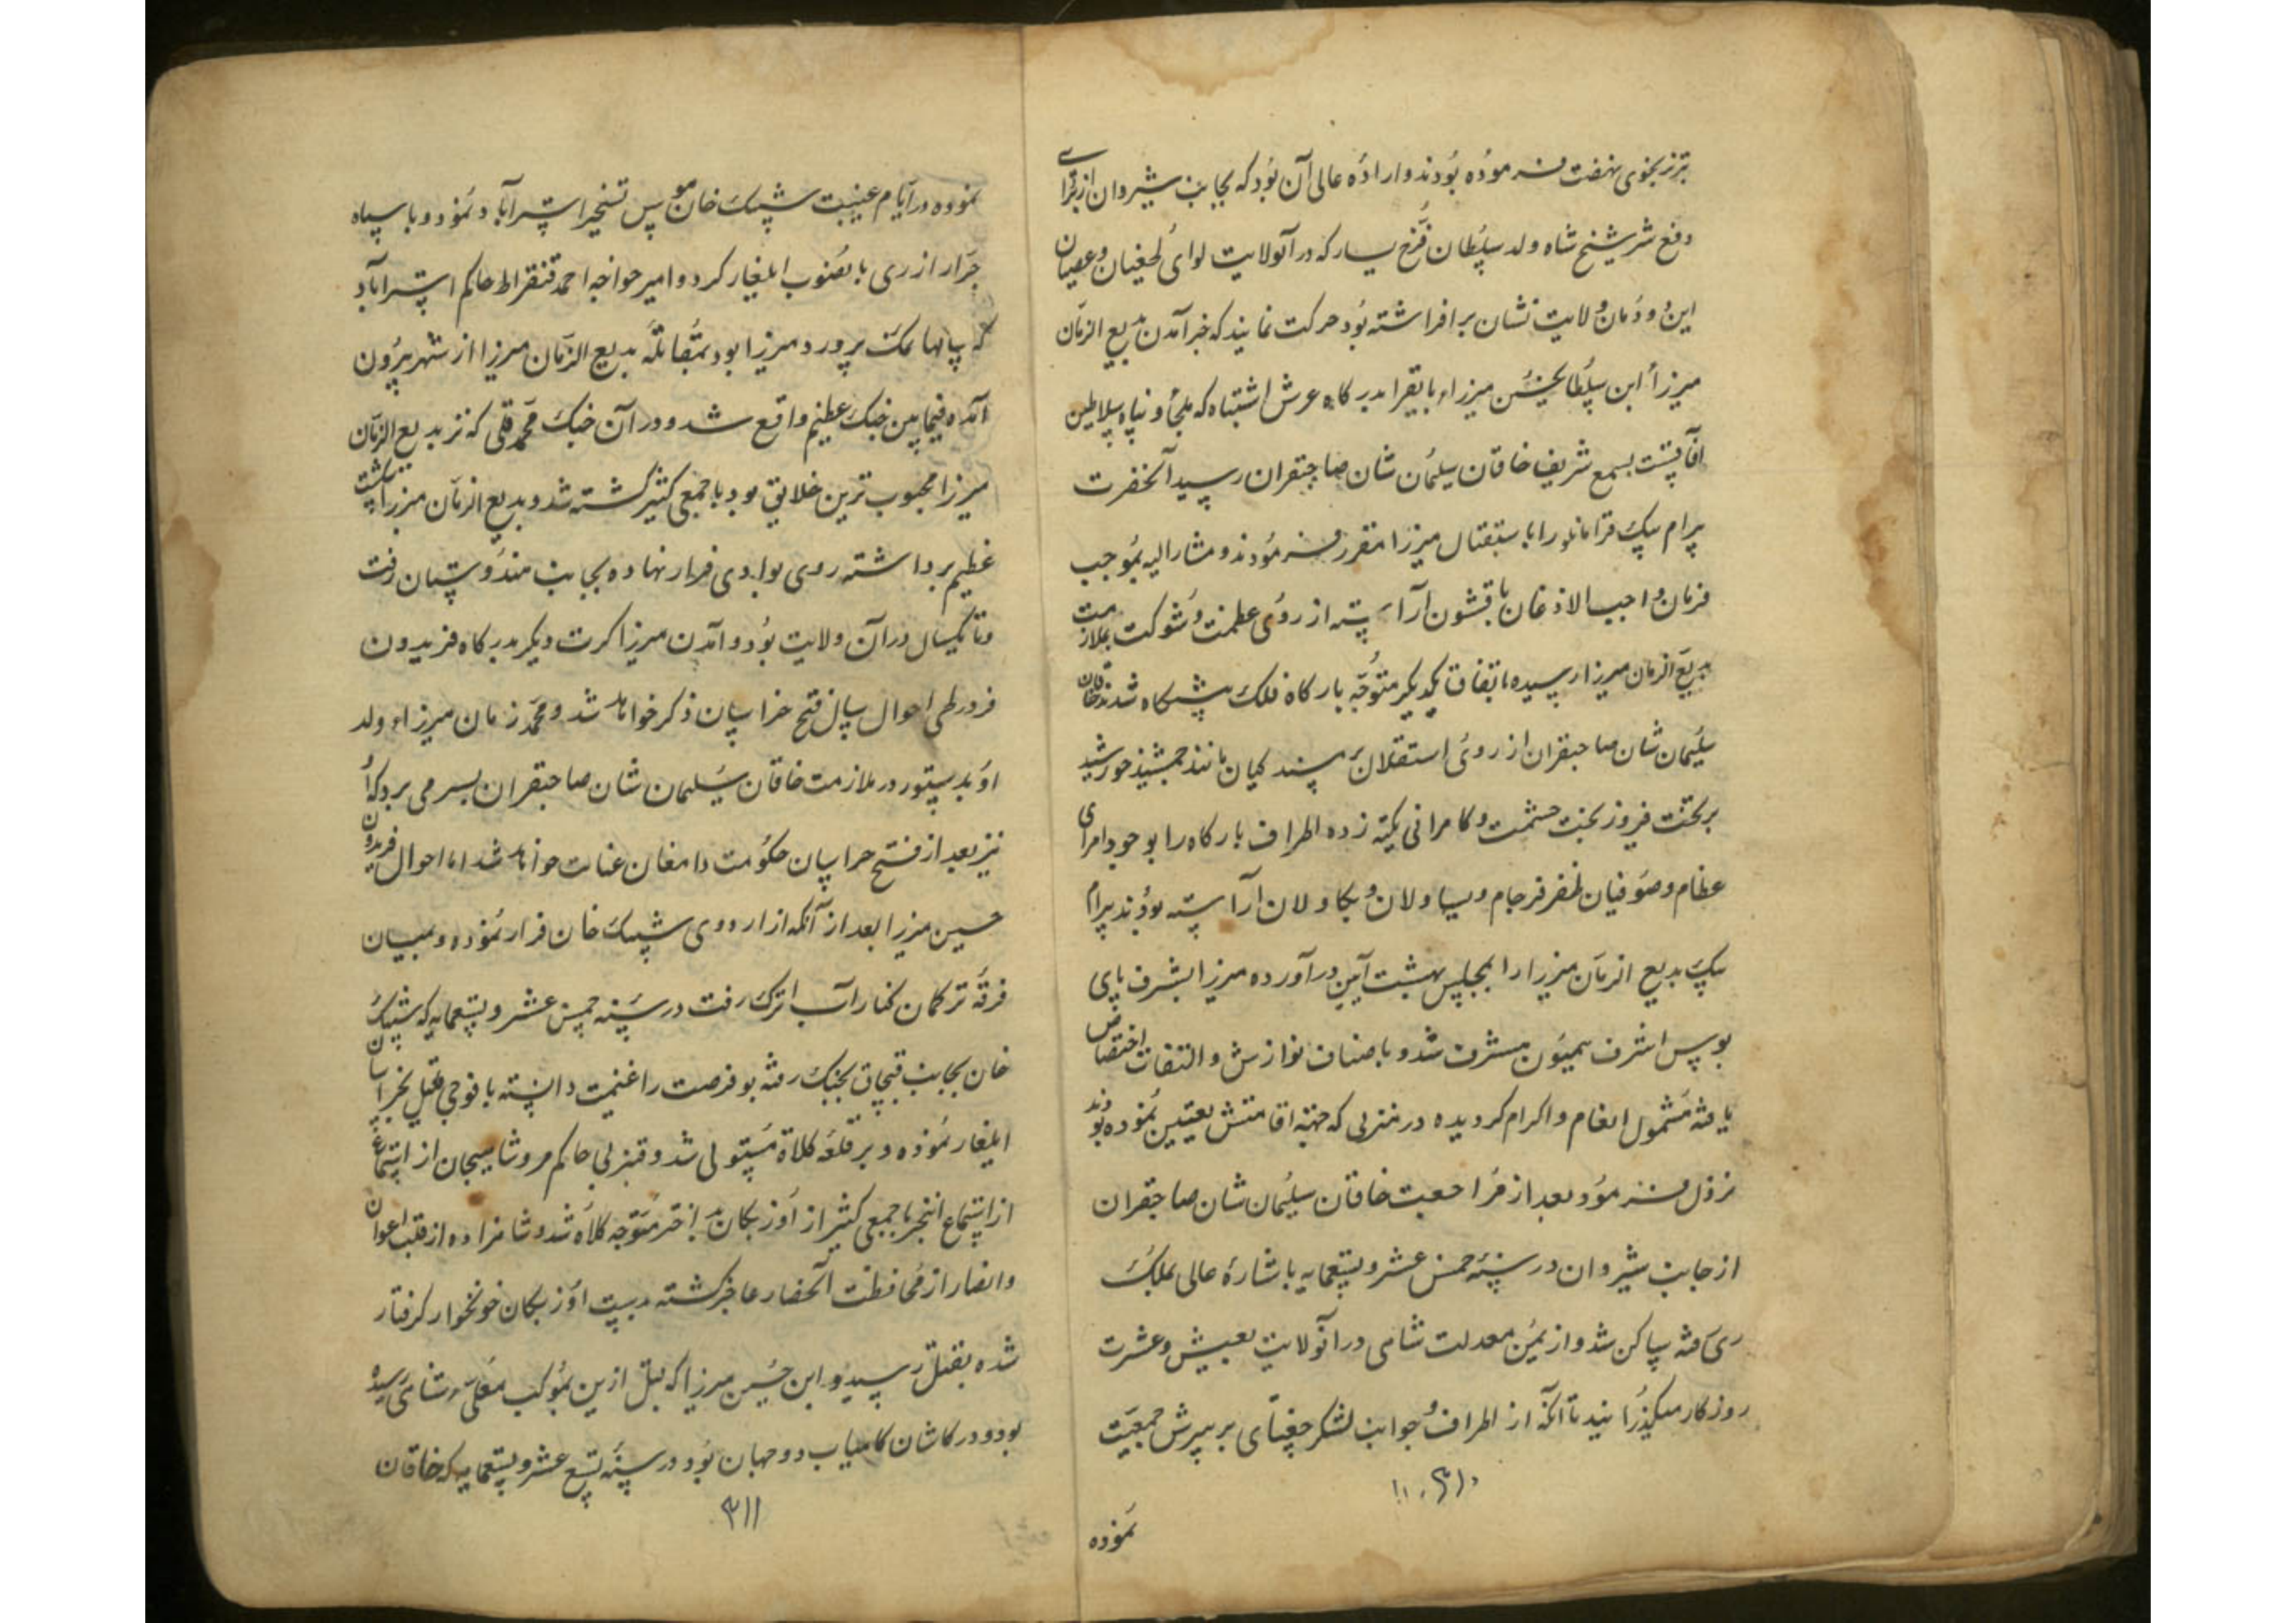 نهضت فرموده بودند و اراده عالی آن بود که بجانب شیروان از برای
دفع شر شیخ شاه ولد سلطان فرخ یسار که در آنولایت لوای طغیان و عصیان
این دودمان ولایت نشان بر افراشته بود حرکت نمایند که خبر آمدن بدیع الزمان
میرزا ابن سلطانحسین میرزاء بایقرا بدرگاه عرش اشتباه که ملجأ و پناه سلاطین
آفاقست بسمع شریف خاقان سلیمان شان صاحبقران رسید آنحضرت
پیرام بیک قرامانلو را باستقبال میرزا مقرر فرمودند و مشار الیه بموجب
فرمان واجب الاذعان با قشون آراسته از روی عظمت و شوکت بملازمت
بدیع الزمان میرزا رسیده باتفاق یکدیگر متوجه بارگاه فلک پیشگاه شدند خاقان
سلیمان شان صاحبقران از روی استقلال بر مسند کیان مانند جمشید خورشید
بر تخت فیروز بخت حشمت و کامرانی تکیه زده اطراف بارگاه را بوجود امرای
عظام و صوفیان ظفر فرجام و یساولان و بکاولان آراسته بودند پیرام
بیک بدیع الزمان میرزا را بمجلس بهشت آیین در آورده میرزا بشرف پای
بوس اشرف همیون مشرف شد و باصناف نوازش و التفات اختصاص
یافته مشمول انعام و اکرام گردیده در منزلی که جهته اقامتش تعیین نموده بودند
نزول فرمود و بعد از مراجعت خاقان سلیمان شان صاحبقران
از جانب شیروان در سنه خمس عشر و تسعمایه باشارهٔ عالی بملک
ری رفته ساکن شد و از یمن معدلت شاهی در آنولایت بعیش و عشرت
روزگار میگذرانید تا آنکه از اطراف و جوانب لشکر جغتای بر سرش جمعیت
۳۱۰
نموده
نموده در ایام غیبت شیبک خان هوس تسخیر استرآباد نمود و با سپاه
جرار از ری بانصوب ایلغار کرد و امیر خواجه احمد قنقراط حاکم استرآباد
که سالها نمک پرورد میرزا بود بمقابلهٔ بدیع الزمان میرزا از شهر بیرون
آمده فیمابین جنگ عظیم واقع شد و در آن جنگ محمد قلی که نزد بدیع الزمان
میرزا محبوب ترین خلایق بود با جمعی کثیر کشته شد و بدیع الزمان میرزا شکست
عظیم برداشته روی بوادی فرار نهاده بجانب هندوستان رفت
و تا یکسال در آن ولایت بود و آمدن میرزا کرت دیگر بدرگاه فریدون
فر در طی احوال سال فتح خراسان ذکر خواهد شد و محمد زمان میرزاء ولد
او بدستور در ملازمت خاقان سلیمان شان صاحبقران بسر می برد که او
نیز بعد از فتح خراسان حکومت دامغان عنایت خواهد شد اما احوال فریدون
حسین میرزا بعد از آنکه از اردوی شیبک خان فرار نموده و بمیان
فرقهٔ ترکمان کنار آب اترک رفت در سنه خمس عشر و تسعمایه که شیبک
خان بجانب قبچاق بجنگ رفته بود فرصت را غنیمت دانسته با فوجی قلیل بخراسان
ایلغار نموده و بر قلعه کلاة مستولی شد و قنبر بی حاکم مرو شاهیجان از استماع
از استماع اینخبر با جمعی کثیر از اوزبکان متوجه کلاه شد و شاهزاده از قلت اعوان
و انصار از محافظت آنحصار عاجز گشته بدست اوزبکان خونخوار گرفتار
شده بقتل رسید و ابن حسین میرزا که قبل ازین بموکب معلی شاهی رسیده
بود و در کاشان کامیاب دو جهان بود در سنه تسع عشر و تسعمایه که خاقان
۳۱۱